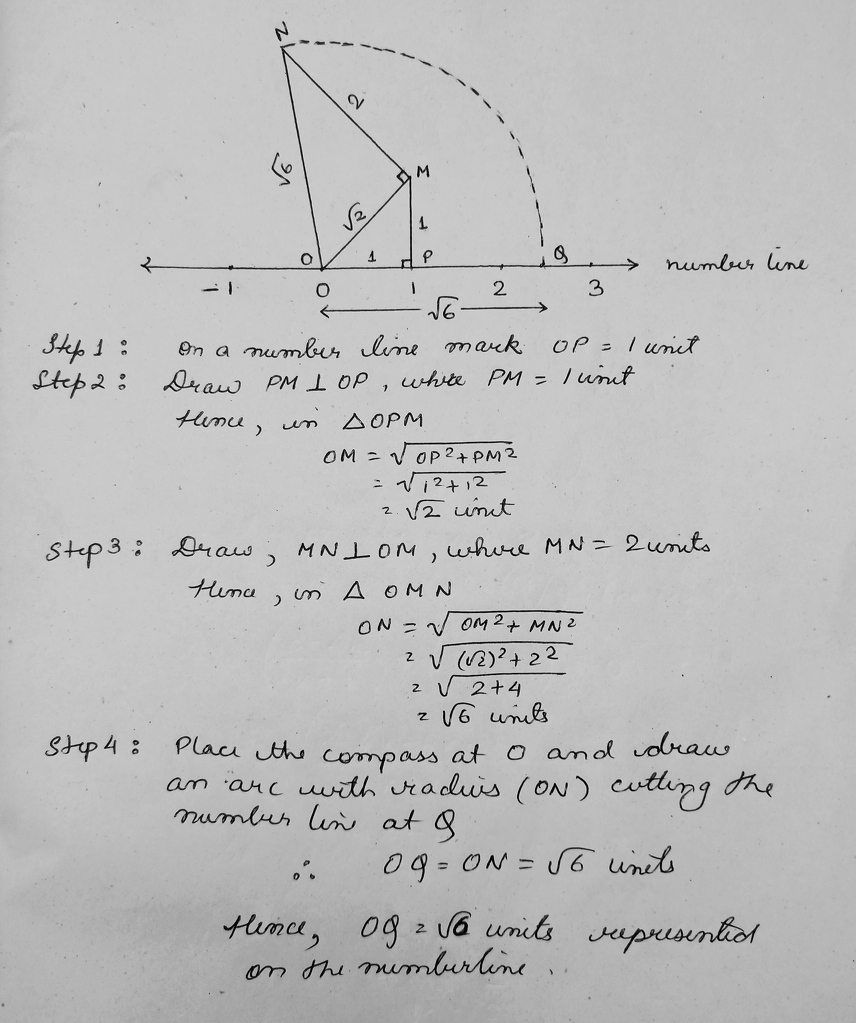 N
2
√6
M
√2
1
O 1 P Q number line
-1 0 1 2 3
√6
Step 1 : On a number line mark OP = 1 unit
Step 2 : Draw PM ⊥ OP , where PM = 1 unit
Hence , in △OPM
OM = √OP²+PM²
= √1²+1²
= √2 unit
Step 3 : Draw , MN ⊥ OM , where MN = 2 units
Hence , in △ OMN
ON = √OM²+ MN²
= √(√2)²+2²
= √2+4
= √6 units
Step 4 : Place the compass at O and draw
an arc with radius (ON) cutting the
number line at Q
∴ OQ = ON = √6 units
Hence, OQ = √6 units represented
on the numberline .